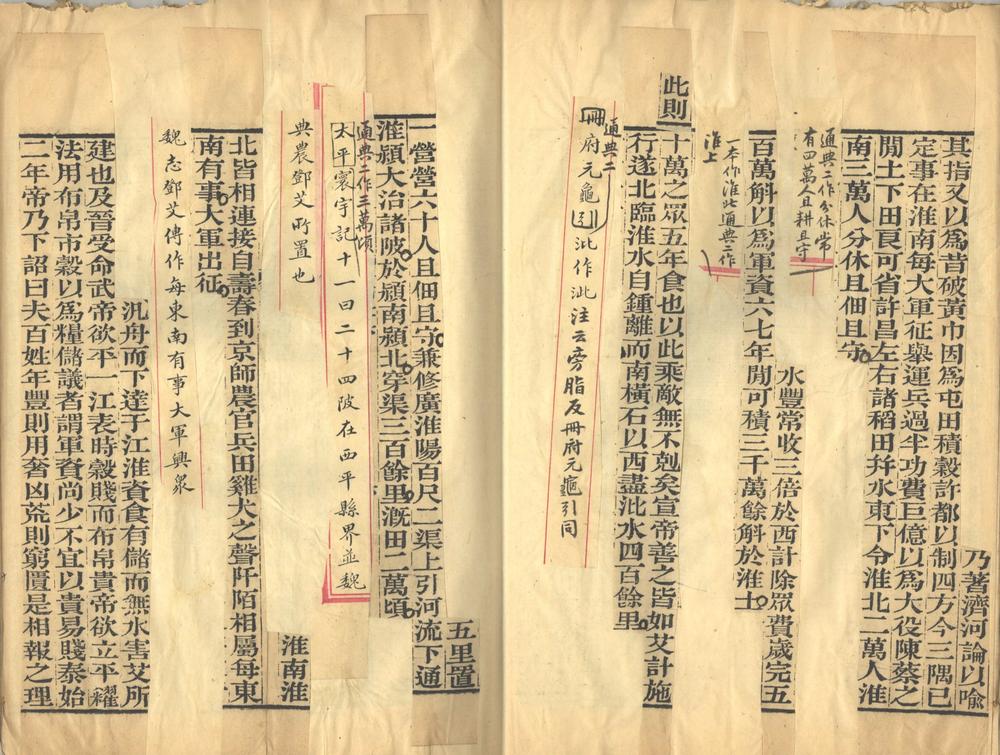 乃著濟河論以喻
其指又以爲昔破黃巾因爲屯田積穀許都以制四方今三隅已
定事在淮南每大軍征舉運兵過半功費巨億以爲大役陳蔡之
閒土下田良可省許昌左右諸稻田并水東下令淮北二萬人淮
南三萬人分休且佃且守
通典二作分休常
有四萬人且耕且守
水豐常收三倍於西計除眾費歲完五
百萬斛以爲軍資六七年閒可積三千萬餘斛於淮土
一本作淮北通典二作
淮上
此則
十萬之眾五年食也以此乘敵無不剋矣宣帝善之皆如艾計施
行遂北臨淮水自鍾離而南橫石以西盡沘水四百餘里
通典二
冊府元龜引沘作泚注云旁脂反冊府元龜引同
五里置
一營營六十人且佃且守兼修廣淮陽百尺二渠上引河流下通
淮潁大治諸陂於潁南潁北穿渠三百餘里溉田二萬頃
通典二作三萬頃
太平寰宇記十一曰二十四陂在西平縣界並魏
典農鄧艾所置也
淮南淮
北皆相連接自壽春到京師農官兵田雞犬之聲阡陌相屬每東
南有事大軍出征
魏志鄧艾傳作每東南有事大軍興眾
汎舟而下達于江淮資食有儲而無水害艾所
建也及晉受命武帝欲平一江表時穀賤而布帛貴帝欲立平糴
法用布帛市穀以爲糧儲議者謂軍資尚少不宜以貴易賤泰始
二年帝乃下詔曰夫百姓年豐則用奢凶荒則窮匱是相報之理